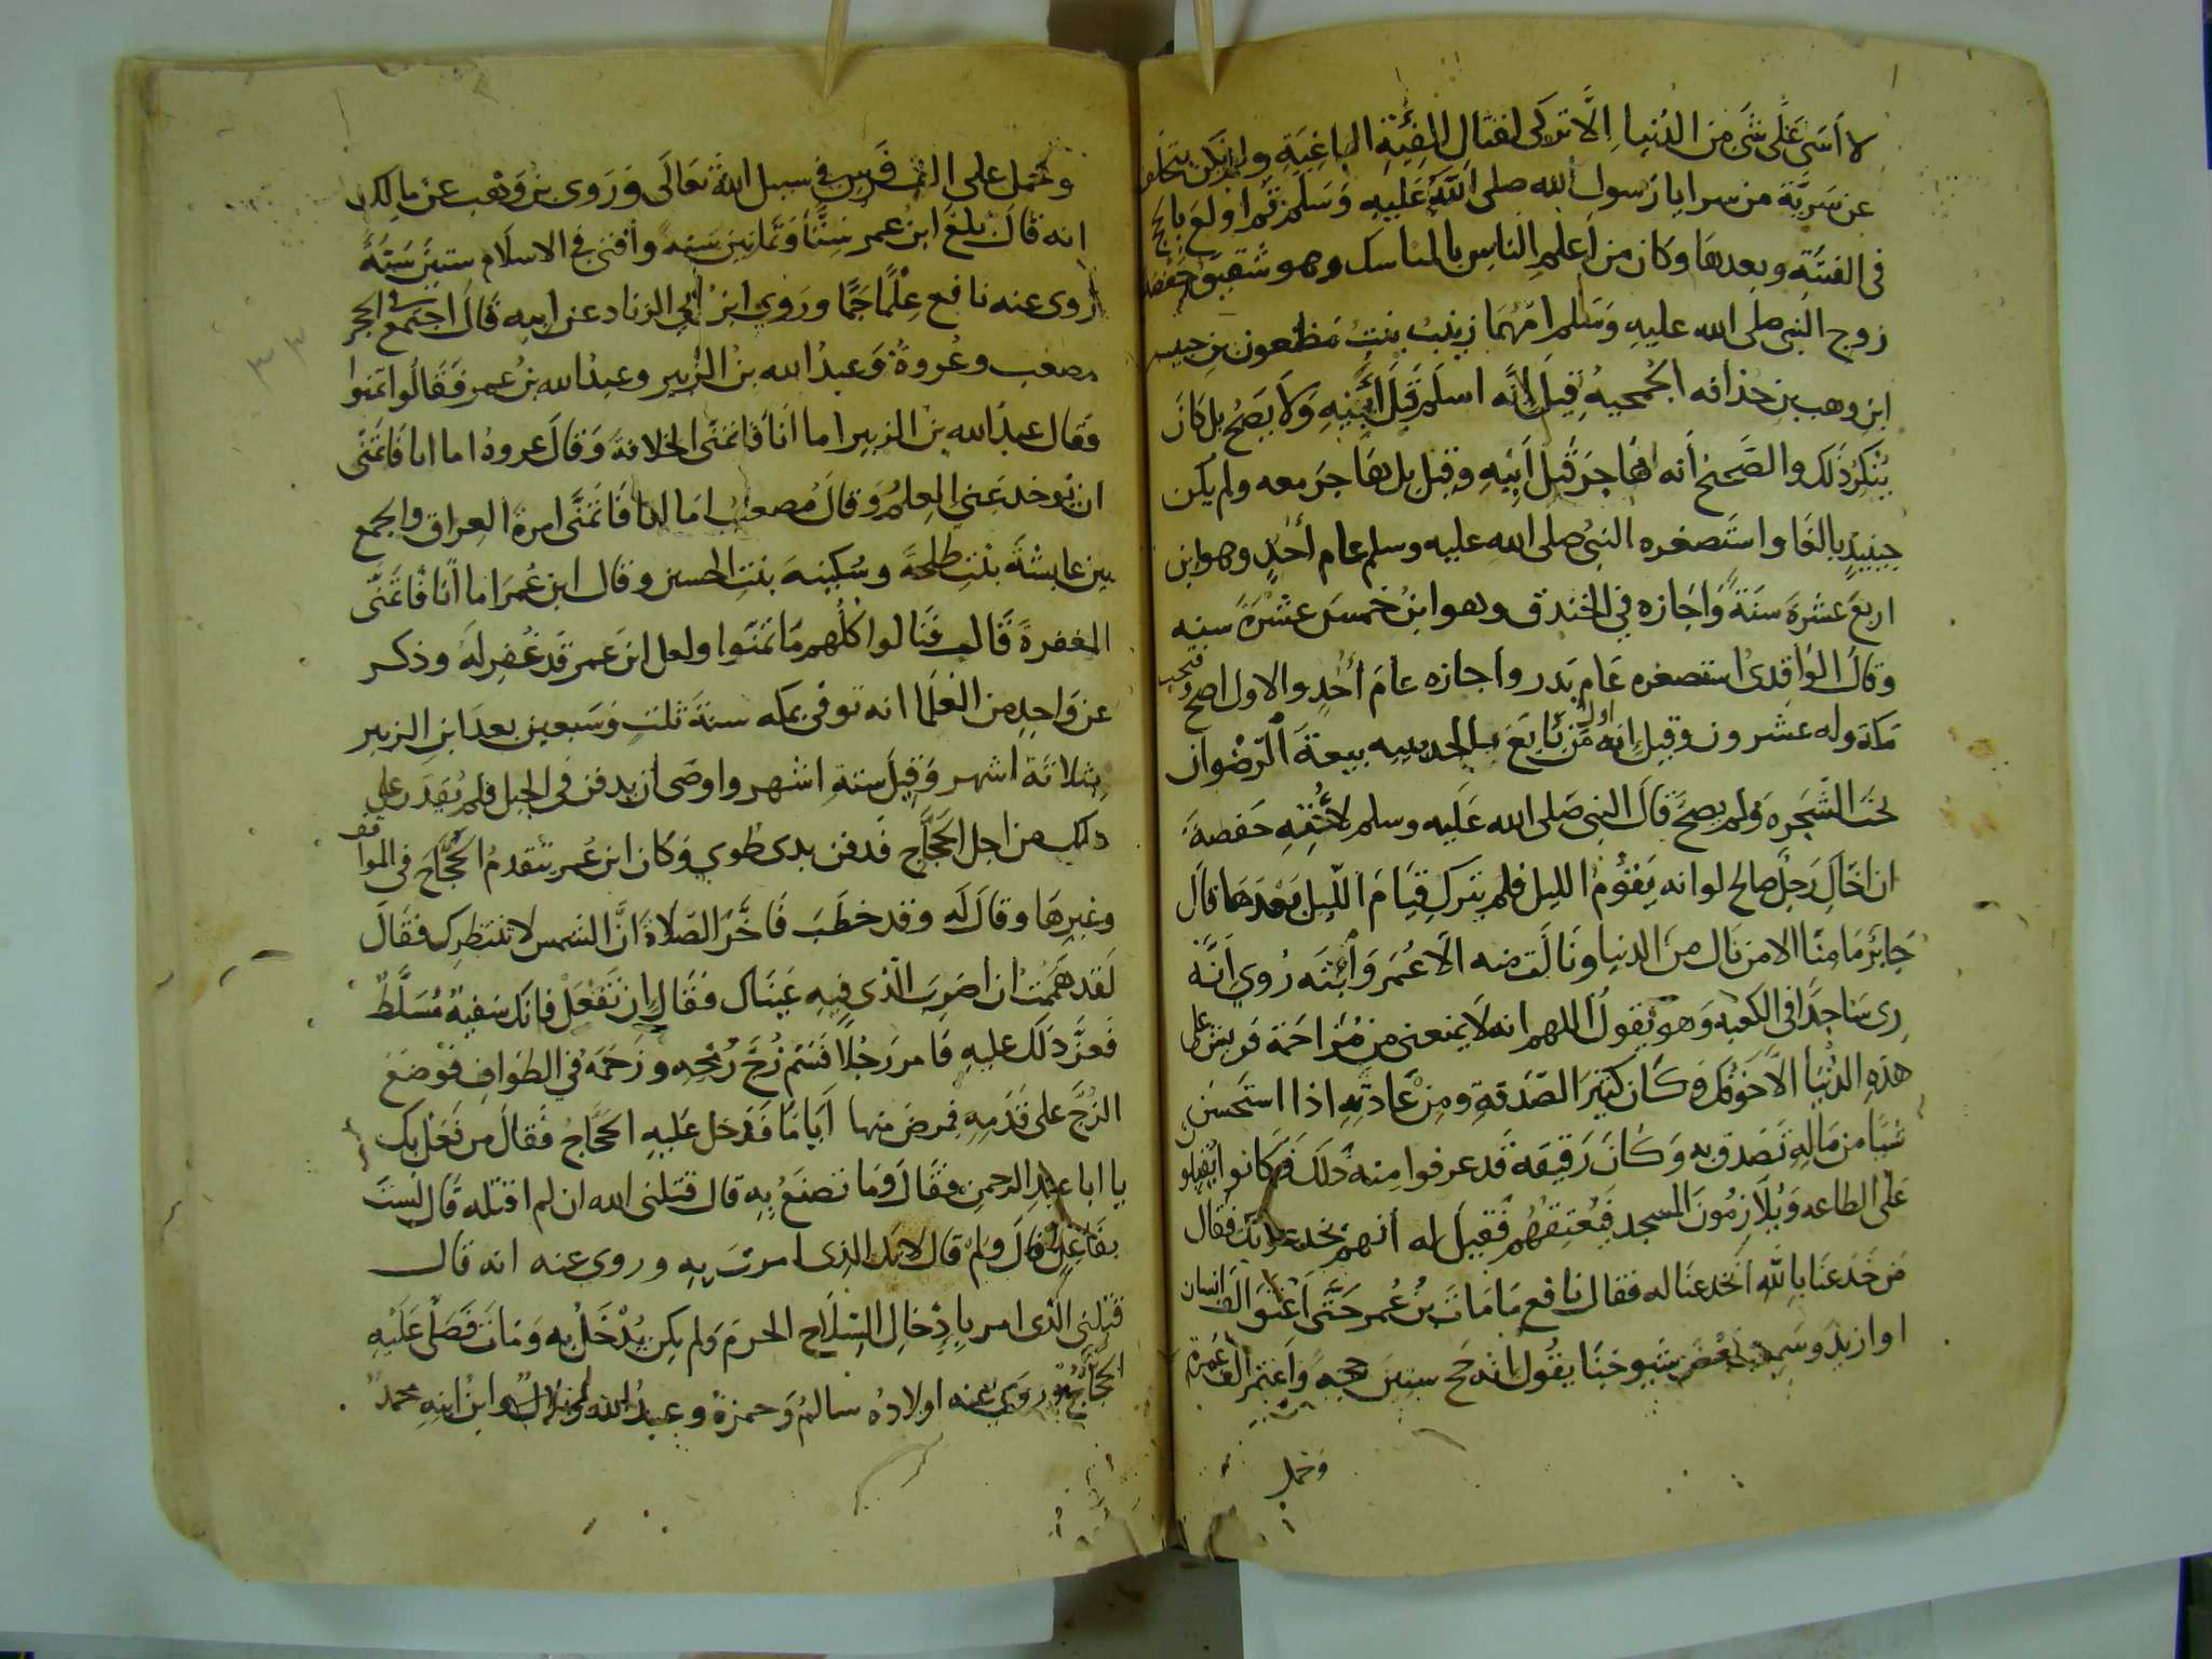 لا اَسَى عَلَى شَئ من الدُنيا اِلَّا تركى لقتال الفِئَةِ الباغِيَةِ ولم يكن يتخلف
عن سَرِيَّة من سرايا رَسول الله صلى اللّهُ عَلَيهِ وَسَلم ثم اولعَ بالحج
فى الفتنَةِ وبعدهَا وكان من اَعلمِ الناسِ بالمناسك وهو شقيق حفصه
زوج النبى صلى الله عليهِ وَسَلم امّهُمَا زينبُ بنتُ مَظعون بنِ حبيب
ابنِ وهب بن حذافه الجُمحيهُ قيلَ لانّه اسلَم قَبلَ اَبيْهِ وَلَا يَصِحُ بل كانَ
يُنكرُ ذَلك والصَّحيح أنه هَاجَر قَبلَ اَبيهِ وقيل بل هَاجَر معه ولم يكن
حِينَيذٍ بالغا واستَصغره النبىُ صلى الله عليه وسلم عام أحُدٍ وهو ابن
اربعَ عشرةَ سنَةً وَاجَازه فى الخندق وهو ابنُ خمسَ عَشْرَةَ سنه
وقالَ الوَاقِدىُ استصغره عَام بَدر واجازه عامَ أحُدٍ والاول اصح وفتحت
مَكة وله عشرون وقيل انه اول من بَايَعَ بالحديبيه بيعةَ الرّضْوان
تحتَ الشَجَره ولم يصحَّ قالَ النبى صَلى الله عَلَيه وسلم لاخْتِهِ حَفصةَ
ان اخَاكِ رَجلٌ صالح لو انه يَقوُمُ الليل فلم يترك قيَامَ اللّيل بَعْدهَا قال
جَابرٌ مَا مِنّا الا من نَال منَ الدنيا ونَالَت منه الّا عُمَر وَابنَه رُوي اَنَّه
رى سَاجدًا فى الكَعبَه وَهو يَقولُ اللهم انه لا يَمنعنى من مُزاحَمة قريش على
هذهِ الدُنيَا الّا خَوفُك وَكَان كثيرَ الصّدَقةِ ومِن عَادتِهِ اذا استَحسَن
شيًا من مَالِهِ تَصَدق به وَكَانَ رَقيقه قد عرفوا منه ذَلكَ فكانوا يقبلون
عَلى الطاعه وَيُلَازِمُونَ المسجد فيُعتِقهُم فَقيلَ له أنهم يخدعونك فقال
مَن خَدعنَا باللّهِ انخدعنَا له فقال نافع مَا مَاتَ بنُ عُمر حَتَّى اَعْتَق الف انسان
او ازيد وسَمِعت بَعضَ شيوخنَا يقُولُ انه حَج ستين حجه وَاَعتَمر الف عُمرة
وحمل
وحَمل على الف فَرس فى سبيل اللّه تعَالَى وَرَوى بن وَهْب عن مالِك
انه قال بلغ ابنُ عمر سِتًّا وَثَمانين سَنةً وافتى فى الاسلام ستينَ سَنَةً
روى عنه نافع عِلْمًا جَمًّا وروي ابنُ ابي الزناد عن ابيه قالَ اجتمع فى الحجر
مصعب وعُروةُ وَعبدُ الله بنُ الزُبير وعبدُ الله بنُ عُمر فَقَالُوا تمَنوا
فقال عبدُ الله بن الزبير اما اَنَا فَاتمَنَّى الخلافةَ وَقالَ عروةُ اما انا فاتَمَنى
ان يؤخد عَنى العِلمُ وَقالَ مُصعبٌ امَا انا فاَتمَنَّى امرةَ العِراق والجمع
بين عايشَةَ بنتِ طلحةَ وسُكينهَ بنتِ الحسين وقال ابن عُمَرَ اما اَنَا فَاتمَنّى
المغفرةَ قَال فنالوا كلُهم مَا تمَنَوا ولعل ابنَ عمر قَد غُفِرلَهُ وذكر
عن وَاحِدٍ من العلَما انه توفى بمكه سنةَ ثلثٍ وسَبعين بعدَ ابنِ الزبير
بثلاثة اشهر وقيلَ ستةِ اشهر واوصَى ان يدفن فى الحِل فلم يُقدَر على
دلك من اجل الحَجَّاج فدفن بدى طُوي وكان ابن عُمر يتقدمُ الحُجَّاجَ فى المواقف
وغيرِها وقالَ لَه وقد خطَبَ فَاخَّرَ الصّلَاةَ اَنَّ الشمس لا تنتظرك فقالَ
لَقد هَمَمتُ ان اضرِبَ الّذى فيهِ عَينَاك فقالَ ان تَفْعَلْ فانَّك سَفيهُ مُسَلَّطٌ
فعزَّ دَلكَ عليهِ فَامر رَجُلًا فَسَم زُجَّ رُمْحِه وزَحَمَهُ فى الطَوَافِ فَوَضعَ
الزجَّ عَلى قَدمِه فمرضَ منها اَيَامًا فدخل عَليهِ الحَجَّاجُ فقالَ من فَعَل بك
يا ابا عبدِ الرحمنِ فقالَ وَمَا تصنَعُ بِهِ قال قتلنى الله ان لم اقتله قَال لستَ
بفَاعِلٍ قالَ ولمَ قال لانّك الذى امرتَ بِهِ وروى عنه انه قال
قتلني الذى امر بِإِدْخالِ السِّلَاح الحرمَ وَلم يكن يُدْخَلُ به وَمَاتَ فصَلى عَلَيهِ
الحجَّاجُ وروي عنه اولادُه سالمُ وَحمزةُ وعبدُ الله وبلالٌ وابنُ ابنِهِ محمدُ